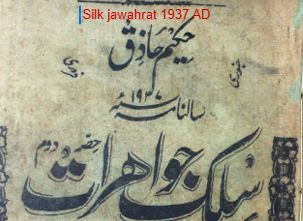 Silk jawahrat 1937 AD
حکیم حاذق
جنوری فروری
سالنامہ ۱۹۳۷ء
حصہ دوم
سلک جواہرات